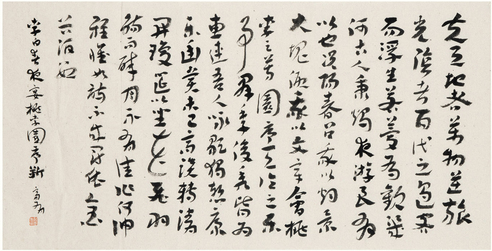 夫天地者萬物之逆旅
光陰者百代之過客
而浮生若夢為歡幾
何古人秉燭夜遊良有
以也況陽春召我以煙景
大塊假我以文章會桃
李之芳園序天倫之樂
事群季俊秀皆為
惠連吾人詠歌獨慚康
樂幽賞未已高談轉清
開瓊筵以坐花飛羽
觴而醉月不有佳作何伸
雅懷如詩不成罰依金
谷酒數
李白春夜宴桃李園序